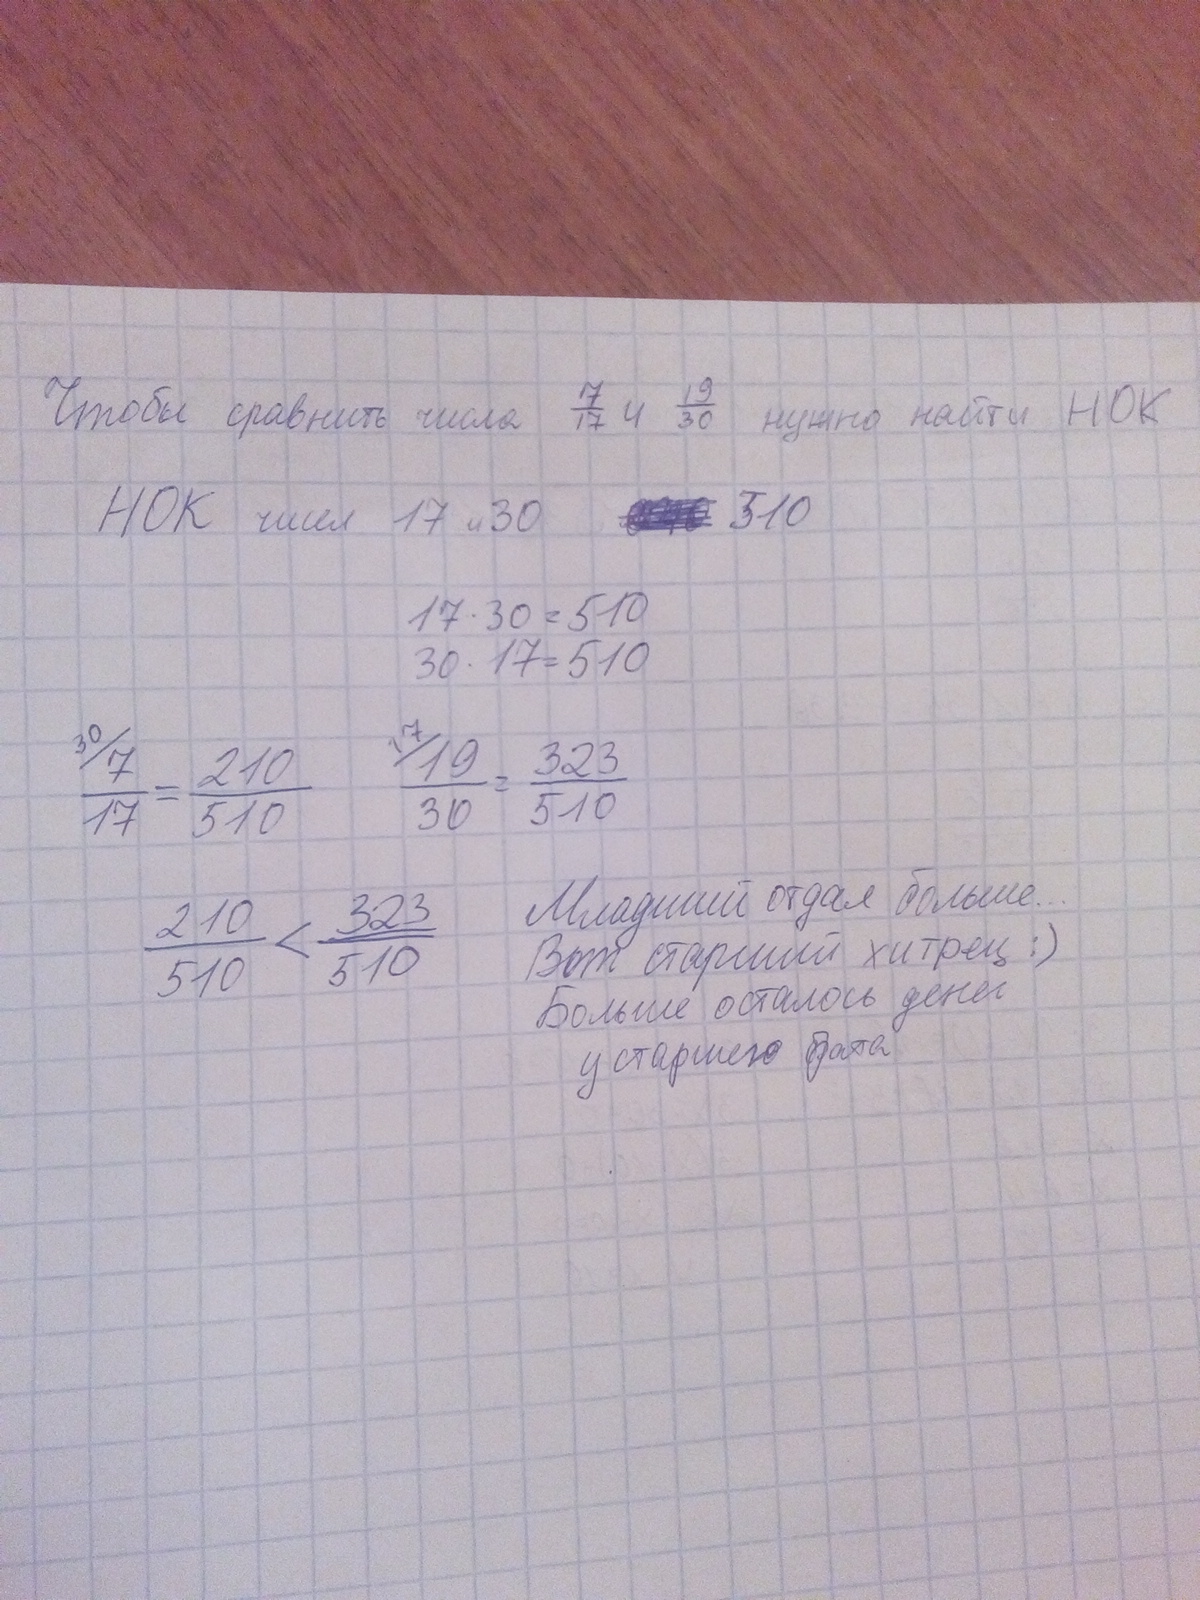 Чтобы сравнить числа 7/17 и 19/30 нужно найти НОК
НОК чисел 17 и 30 510
17 · 30 = 510
30 · 17 = 510
30/ 7/17 = 210/510 17/ 19/30 = 323/510
210/510 < 323/510
Младший отдал больше...
Вот старший хитрец :)
Больше осталось денег
у старшего брата